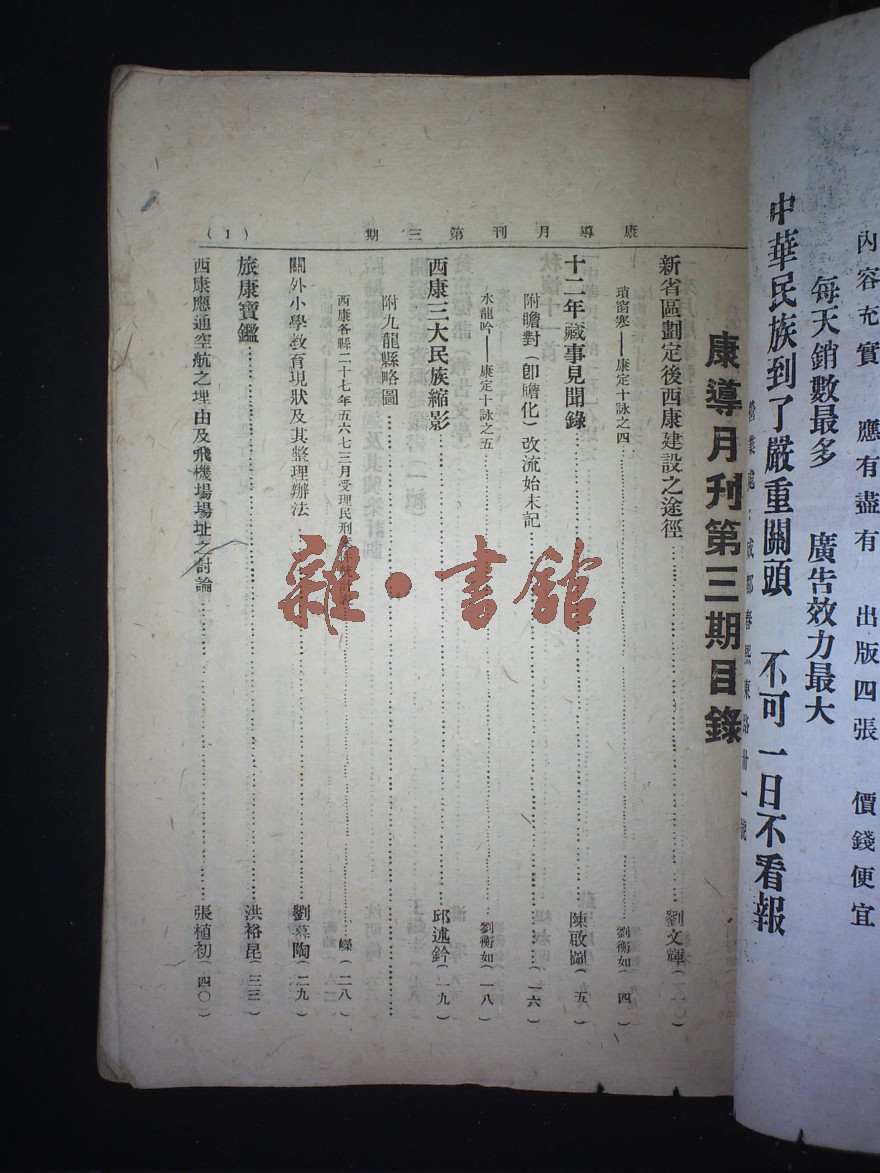 內容充實　應有盡有　出版四張　價錢便宜
每天銷數最多　廣告效力最大
中華民族到了嚴重關頭　不可一日不看報
康導月刊第三期目錄
康導月刊第三期
(1)
新省區劃定後西康建設之途徑……劉文輝
瑣窗寒——康定十詠之四……劉衡如(四)
十二年藏事見聞錄……陳啟圖(五)
附瞻對(卽瞻化)改流始末記……(一六)
水龍吟——康定十詠之五……劉衡如(一八)
西康三大民族縮影……邱述鈐(一九)
附九龍縣略圖……
西康各縣二十七年五六七三月受理民刑……嶸(二八)
關外小學教育現狀及其整理辦法……劉慕陶(二九)
旅康寶鑑……洪裕昆(三三)
西康應通空航之理由及飛機場場址之討論……張植初(四〇)
雜·書館